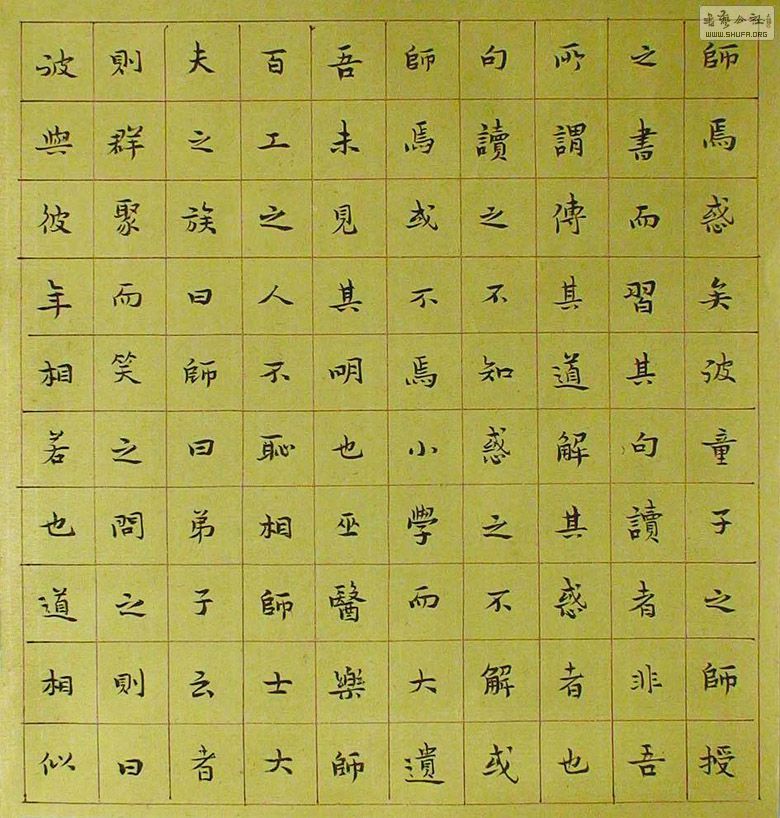 師焉惑矣彼童子之師授
之書而習其句讀者非吾
所謂傳其道解其惑者也
句讀之不知惑之不解或
師焉或不焉小學而大遺
吾未見其明也巫醫樂師
百工之人不恥相師士大
夫之族曰師曰弟子云者
則群聚而笑之問之則曰
彼與彼年相若也道相似
書藝公社
WWW.SHUFA.ORG